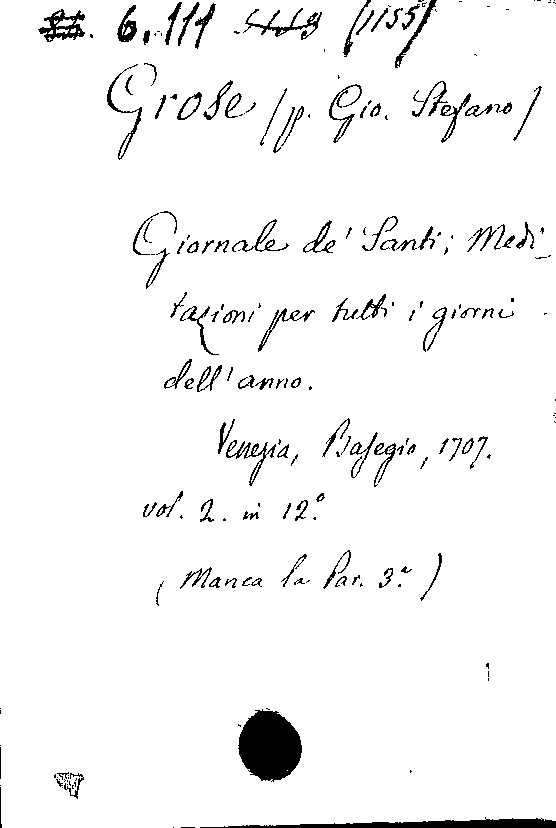 6.111 (1155)
Grose (p. Gio. Stefano)
Giornale de' Santi; Medi_
tazioni per tutti i giorni
dell'anno.
Venezia, Basegio, 1707.
vol. 2. in 12.º
(Manca la Par. 3.ª)